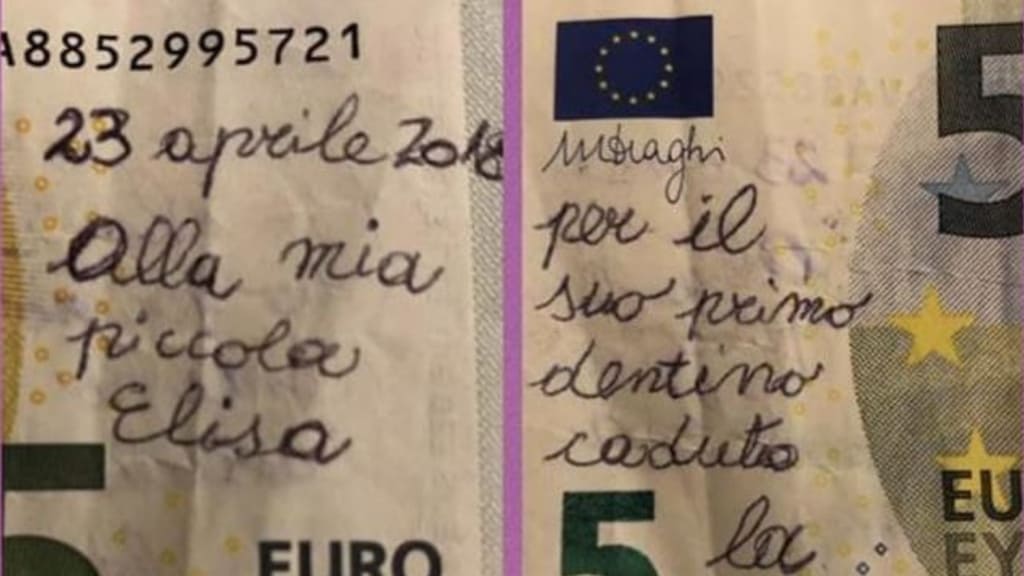 A8852995721
23 aprile 2018
Alla mia
piccola
Elisa
5
EURO
5
MDraghi
per il
suo primo
dentino
caduto
la
5
EU
EY